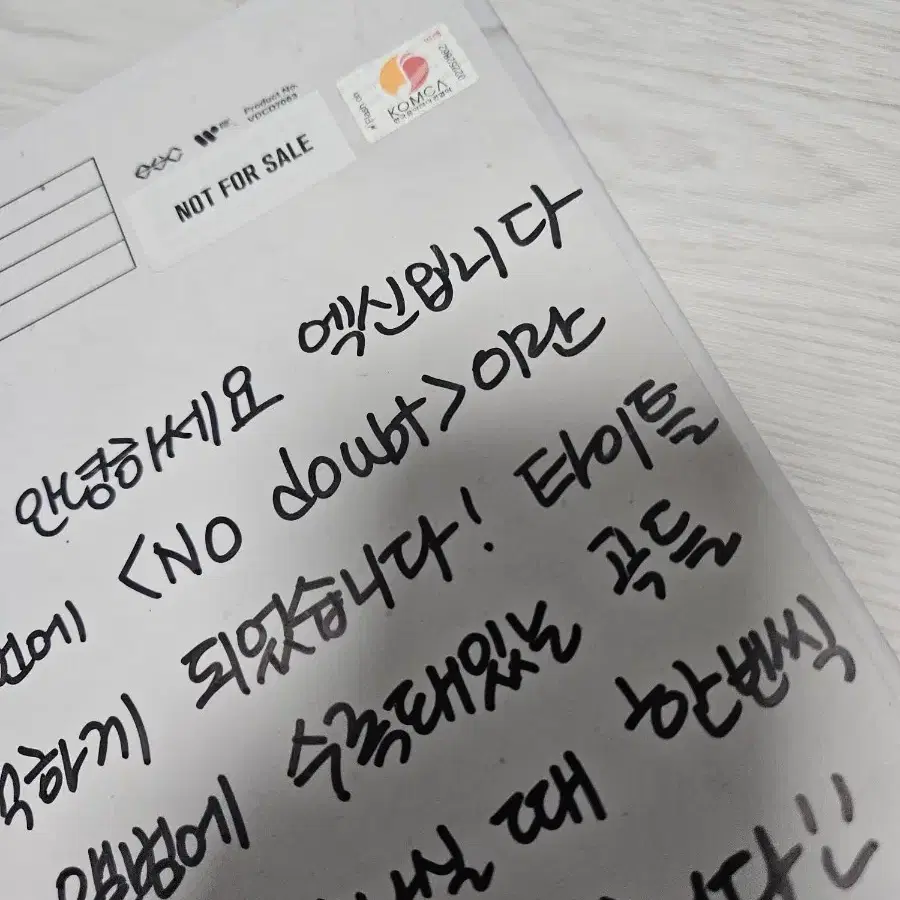 Product No.
VDCD7063
NOT FOR SALE
KOMCA
안녕하세요 엑신입니다
<No doubt>이란
되었습니다! 타이틀
앨범에 수록돼있는 곡들
때 한번씩